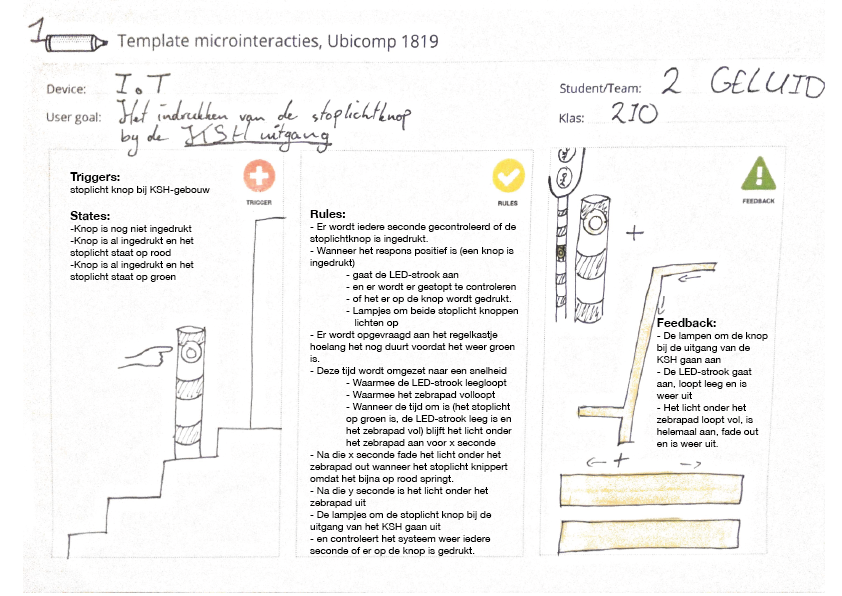 1
Template microinteracties, Ubicomp 1819
Device: I.T
User goal: Het indrukken van de stoplichtknop
by de KSH uitgang
Student/Team: 2 GELUID
Klas: 210
Triggers:
stoplicht knop bij KSH-gebouw
TRIGGER
States:
-Knop is nog niet ingedrukt
-Knop is al ingedrukt en het
stoplicht staat op rood
-Knop is al ingedrukt en het
stoplicht staat op groen
RULES
Rules:
- Er wordt iedere seconde gecontroleerd of de
stoplichtknop is ingedrukt.
- Wanneer het respons positief is (een knop is
ingedrukt)
- gaat de LED-strook aan
- en er wordt er gestopt te controleren
- of het er op de knop wordt gedrukt.
- Lampjes om beide stoplicht knoppen
lichten op
- Er wordt opgevraagd aan het regelkastje
hoelang het nog duurt voordat het weer groen
is.
- Deze tijd wordt omgezet naar een snelheid
- Waarmee de LED-strook leegloopt
- Waarmee het zebrapad volloopt
- Wanneer de tijd om is (het stoplicht
op groen is, de LED-strook leeg is en
het zebrapad vol) blijft het licht onder
het zebrapad aan voor x seconde
- Na die x seconde fade het licht onder het
zebrapad out wanneer het stoplicht knippert
omdat het bijna op rood springt.
- Na die y seconde is het licht onder het
zebrapad uit
- De lampjes om de stoplicht knop bij de
uitgang van het KSH gaan uit
- en controleert het systeem weer iedere
seconde of er op de knop is gedrukt.
FEEDBACK
+
Feedback:
- De lampen om de knop
bij de uitgang van de
KSH gaan aan
- De LED-strook gaat
aan, loopt leeg en is
weer uit
- Het licht onder het
zebrapad loopt vol, is
helemaal aan, fade out
en is weer uit.
+